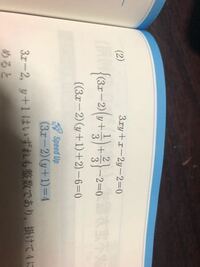 (2) 3xy+x-2y-2=0
{(3x-2)(y+1/3)+2/3}-2=0
((3x-2)(y+1)+2)-6=0
Speed Up
(3x-2)(y+1)=4
3x-2, y+1はいずれも整数であり，掛けて4に
めると